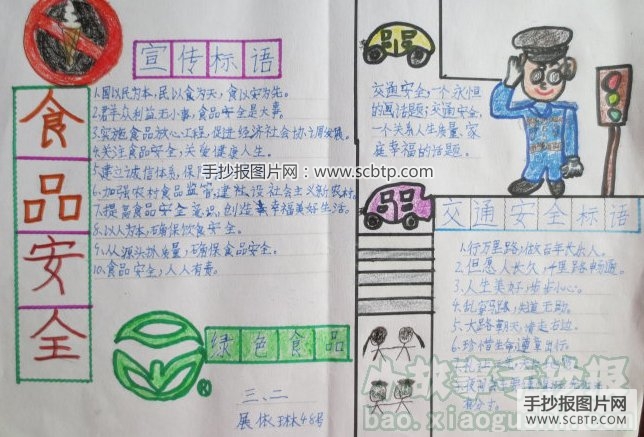 食品安全
宣传标语
1.国以民为本,民以食为天,食以安为先。
2.群众利益无小事,食品安全是大事。
3.实施食品放心工程,促进经济社会协调发展。
4.关注食品安全,关爱健康人生。
5.建立诚信体系,保
6.加强农村食品监管,建设社会主义新农村。
7.提高食品安全意识,创造幸福美好生活。
8.以人为本,确保饮食安全。
9.从源头抓质量,确保食品安全。
10.食品安全,人人有责。
绿色食品
三、二
48号
交通安全,一个永恒
的话题;交通安全,
一个关系人生质量、家
庭幸福的话题。
交通安全标语
1.行万里路,做百年长乐人。
2.但愿人长久,千里路畅通。
3.人生美好,步步小心。
5.大路朝天,靠走右边。
6.珍惜生命遵章行。
手抄报图片网:www.scbtp.com
手抄报图片网
WWW.SCBTP.COM
bao.xiaogu